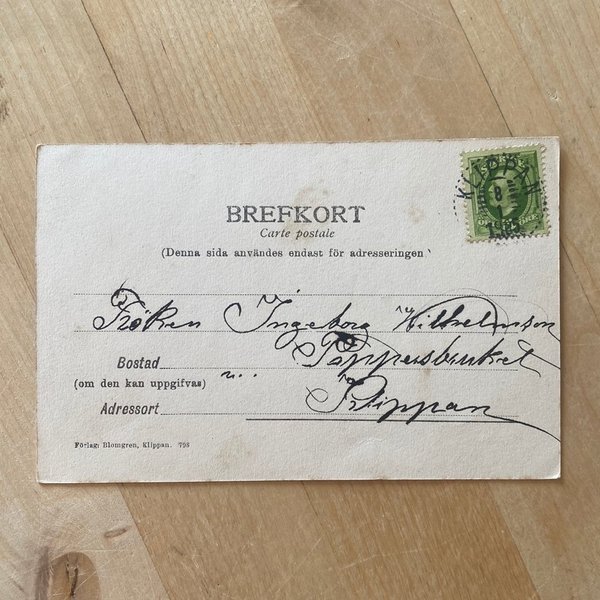 KLIPPAN
8
1903
BREFKORT
Carte postale
(Denna sida användes endast för adresseringen
Fröken Ingeborg Wilhelmson
Bostad Pappersbruket
(om den kan uppgifvas)
Adressort Klippan
Förlag: Blomgren, Klippan. 793